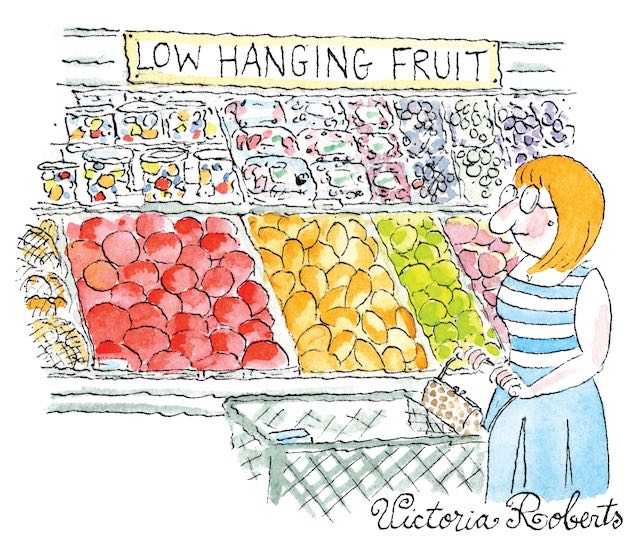 LOW HANGING FRUIT
Victoria Roberts